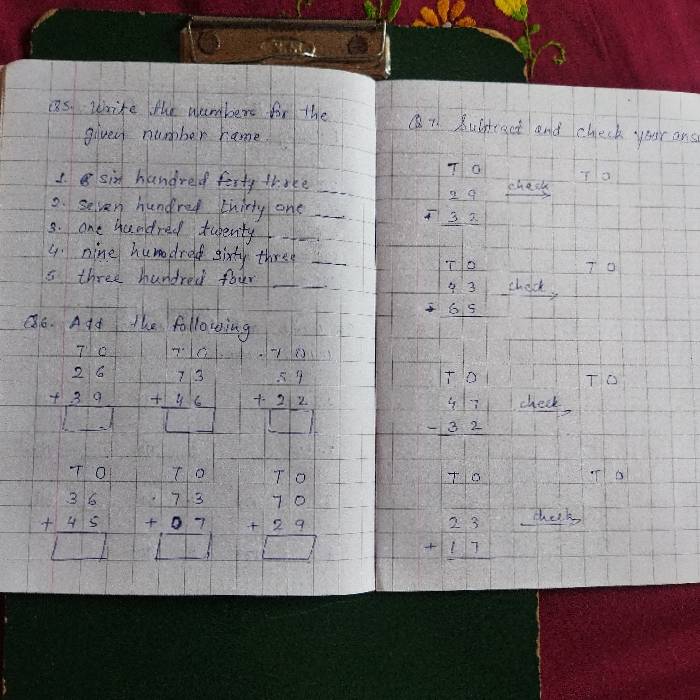 Q5. Write the numbers for the
given number name.
1. six hundred forty three ___
2. seven hundred thirty one ___
3. one hundred twenty ___
4. nine hundred sixty three ___
5. three hundred four ___
Q6. Add the following
T O T O T O
26 73
+ 39 + 46 + 22
T O T O T O
36 73 70
+ 45 + 07 + 29
Q7. Subtract and check your ans
T O T O
29 check
32
T O T O
43 check
65
T O T O
47 check
- 32
T O T O
23 check
+ 17